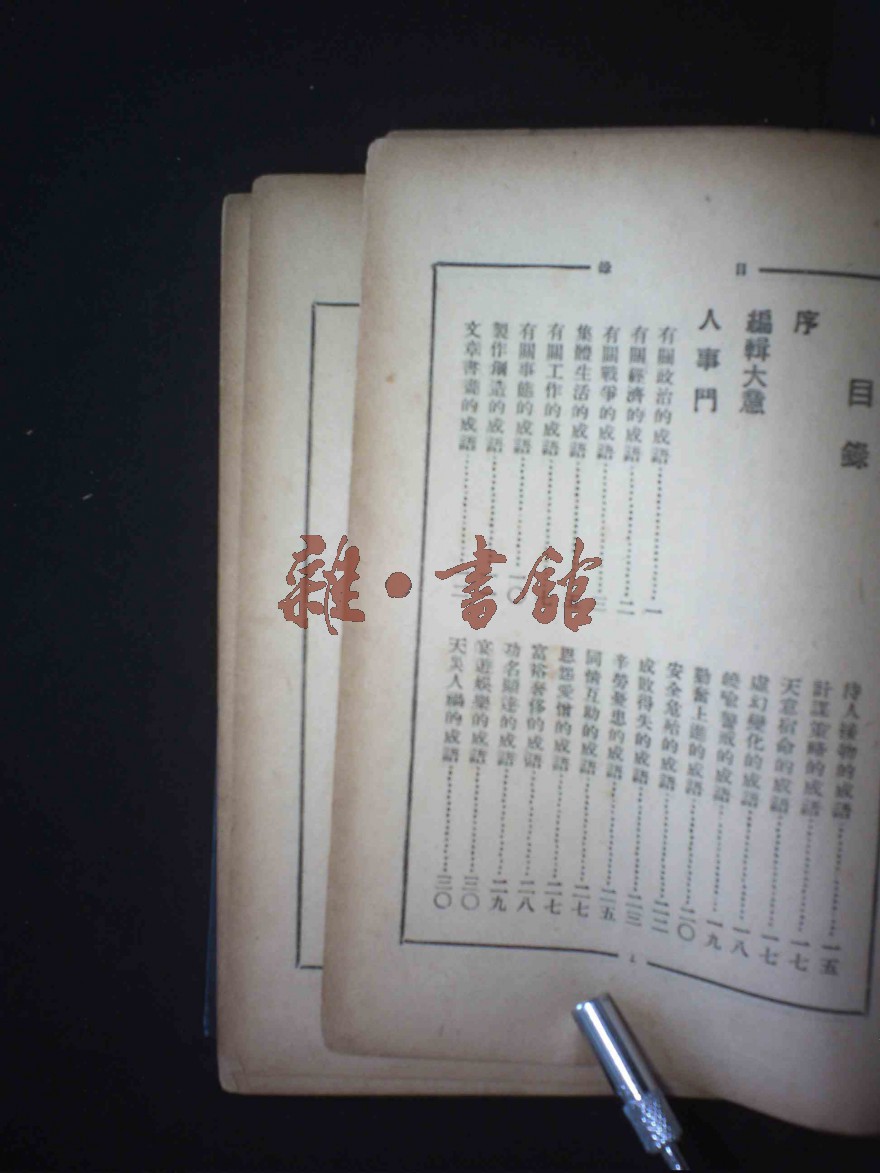 目錄
目錄
序
編輯大意
人事門
有關政治的成語一
有關經濟的成語二
有關戰爭的成語三
集體生活的成語
有關工作的成語
有關事態的成語一〇
製作創造的成語
文章書畫的成語
待人接物的成語一五
計謀策略的成語一七
天意宿命的成語一七
虛幻變化的成語一八
曉喻警戒的成語一九
勤奮上進的成語二〇
安全危殆的成語二二
成敗得失的成語二三
辛勞憂患的成語二五
同情互助的成語二七
恩怨愛憎的成語二七
富裕奢侈的成語二八
功名顯達的成語二九
宴遊娛樂的成語三〇
天災人禍的成語三〇
雜·書館